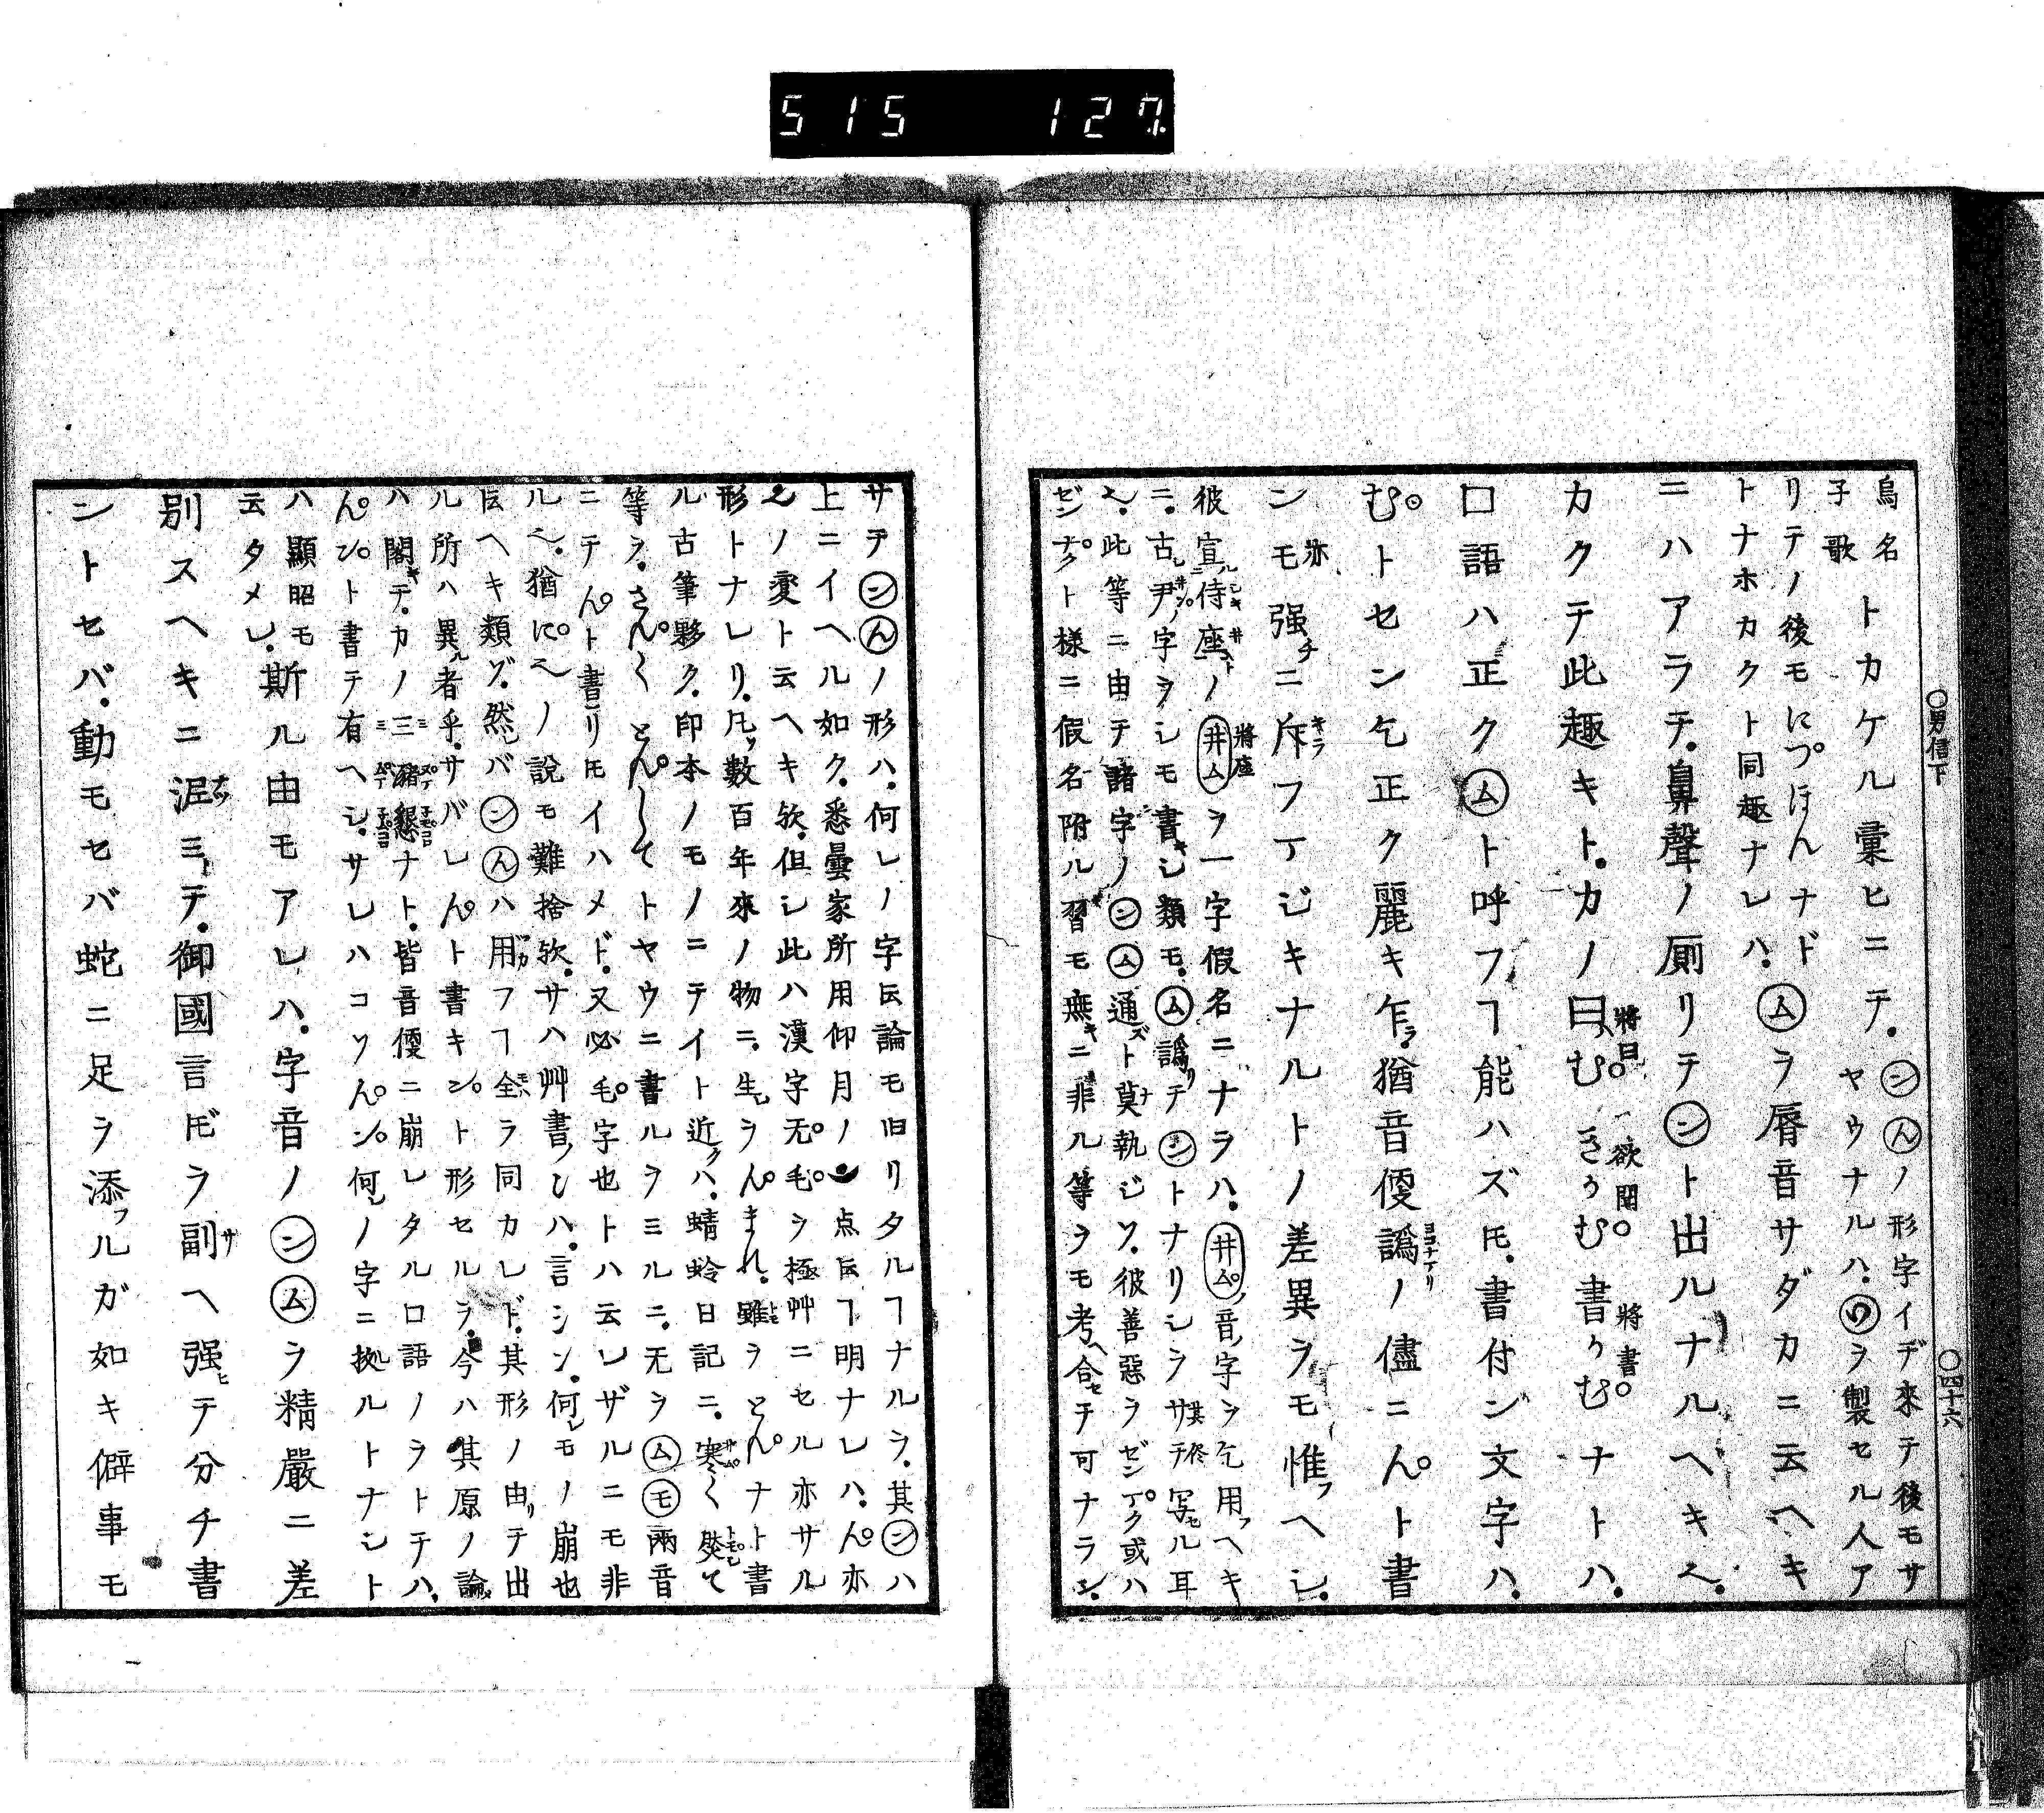 515 127
〇男信下
〇四十六
鳥名子歌トカケル彙ヒニテ。㋛㋑ノ形字イデ來テ後モサ
ヤウナルハ。ヲ製セル人ア
リテノ後モにつほんナドㇺヲ脣音サダカニ云ヘキ
トナホカクト同趣ナレハ。
ニハアラデ。鼻聲ノ厠リテントト出ルナルヘキ〻。
カクテ此趣キト。カノ曰む。きゝむ書ゝむナトハ。
將曰。欲聞。將書。
口語ハ正クムト呼フヿ能ハズ𪜈。書付ン文字ハ。
むトセン乞正ク麗キ乍ラ猶音便譌ノ儘ニんト書
ンモ亦强チニ斥フマジキナルトノ差異ヲモ惟フヘシ。
彼宣侍座ノ井ムヲ一字假名ニナラハ。井ム音ノ字ヲ乞用フヘキ
ニ。古尹ノ字ヲシモ書キシ類モ。ム譌リテントナリシヲサテ写セル耳
〻。此等ニ由テ諸字ノンム通ズト莫執ジソ。彼善惡ヲゼンアク或ハ
ゼンナクト様ニ假名附ル習モ無キニ非ル等ヲモ考ヘ合セテ可ナラン。
サテンんノ形ハ。何レノ字ト云論モ旧リタルヿナルヲ。其ンハ
上ニイヘル如ク。悉曇家所用仰月ノ点ト云ヿ明ナレハ。ん亦
ノ変ト云ヘキ欤。但シ此ハ漢字无毛ヲ極艸ニセル亦サル
形トナレリ。凡ソ數百年來ノ物ニ。生ヲんまれ。雖ヲとんナト書
ル古筆夥ク。印本ノモノニテイト近クハ。蜻蛉日記ニ。寒く焚て
等ヲ。さんくとんしてトヤウニ書ルヲミルニ。无ヲムモ兩音
ニテんト書リ𪜈イハメド。又必毛字也トハ云レザルニモ非
ル〻。猶にへノ說モ難捨欤。サハ艸書ノひハ。言シン。何レモノ崩也
云ヘキ類ゾ。然レバンんハ用フヿ全ラ同カレド。其形ノ由リテ出
ル所ハ異ル者乎。サバレんト書キント形セルヲ。今ハ其原ノ論
ハ閣キテ。カノ三瀦懇ナト。皆音便ニ崩レタル口語ノヲトテハ。
んント書テ有ヘシ。サレハコソんン何レノ字ニ拠ルトナシト
ハ顯昭モ云タメレ。斯ル由モアレハ。字音ノンムヲ精嚴ニ差
別スヘキニ泥ミテ。御國言𪜈ヲ副ヘ强テ分チ書
ントセバ。動モセバ蛇ニ足ヲ添フルガ如キ僻事モ